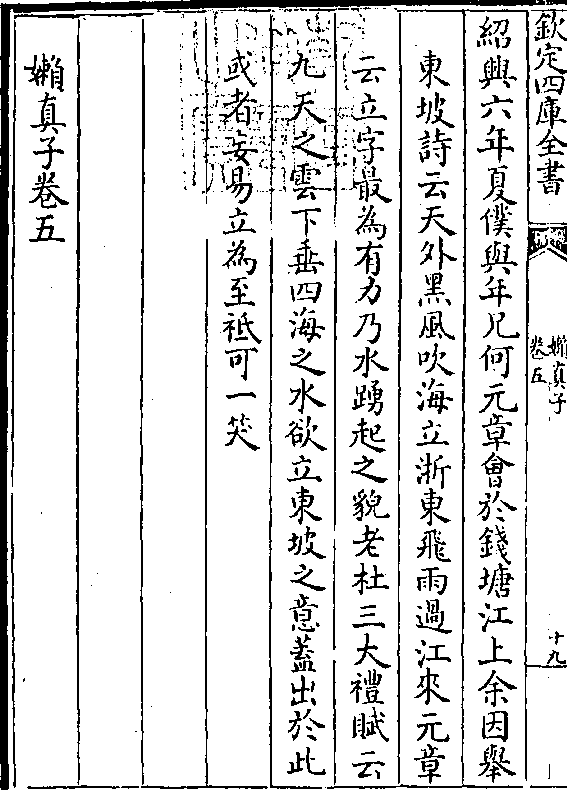 欽定四庫全書
嬾真子
卷五
十九
紹興六年夏僕與年兄何元章會於錢塘江上余因舉
東坡詩云天外黑風吹海立浙東飛雨過江來元章
云立字最為有力乃水踴起之貌老杜三大禮賦云
九天之雲下垂四海之水欲立東坡之意葢出於此
或者妄易立為至祗可一笑
嬾真子卷五